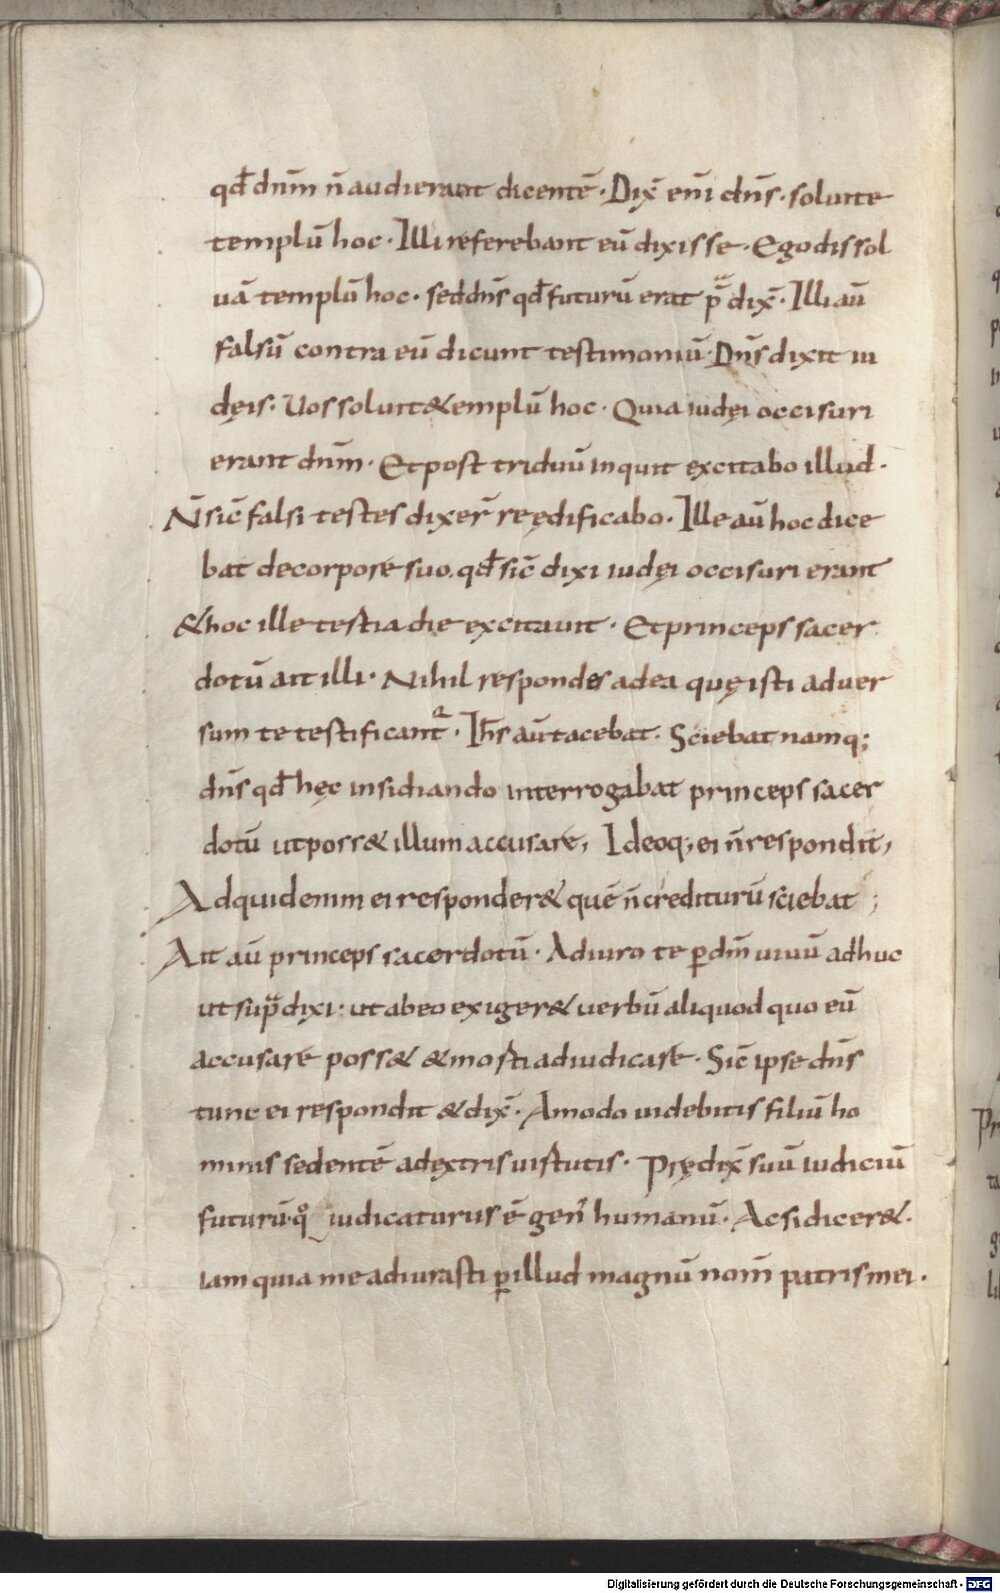 qđ dnm̄ n̄ audierant dicentē · Dix̄ eni̅ dn̄s · soluite
templū hoc · Illi referebant eū dixisse · Ego dissol
uā templū hoc · sed dn̄s qđ futurū erat p̄dix̄ · Illi aū
falsū contra eū dicunt testimoniū · Dn̄s dixit iu
dęis · Uos soluit& emplū hoc · Quia iudęi occisuri
erant dnm̄ · Et post triduū inquit excitabo illud ·
N̄ sic̄ falsi testes dixer̄ reędificabo · Ille aū hoc dice
bat de corpore suo qđ sic̄ dixi iudęi occisuri erant
& hoc ille testia die excitauit · Et princeps sacer
dotū ait illi · Nihil respondes ad ea quę isti aduer
sum te testificant̄ · Ih̄s aūt tacebat · Sciebat namq;
dn̄s qđ hęc insidiando interrogabat princeps sacer
dotū ut poss& illum accusare, Ideoq; ei n̄ respondit,
Ad quid enim ei responder& quē n̄ crediturū sciebat ;
Ait aū princeps sacerdotū · Adiuro te ꝑ dm̄ uiuū adhuc
ut sup̄ dixi · ut ab eo exiger& uerbū aliquod quo eū
accusare poss& & morti adiudicare · Sic̄ ipse dn̄s
tunc ei respondit & dix̄ · Amodo uidebitis filiū ho
minis sedentē a dextris uirtutis · Prędix̄ suū iudiciū
futurū · qͦ iudicaturus ē gen' humanū · Ac si dicer& ·
iam quia me adiurasti ꝑ illud magnū nom̄ patris mei ·
Digitalisierung gefördert durch die Deutsche Forschungsgemeinschaft - DFG